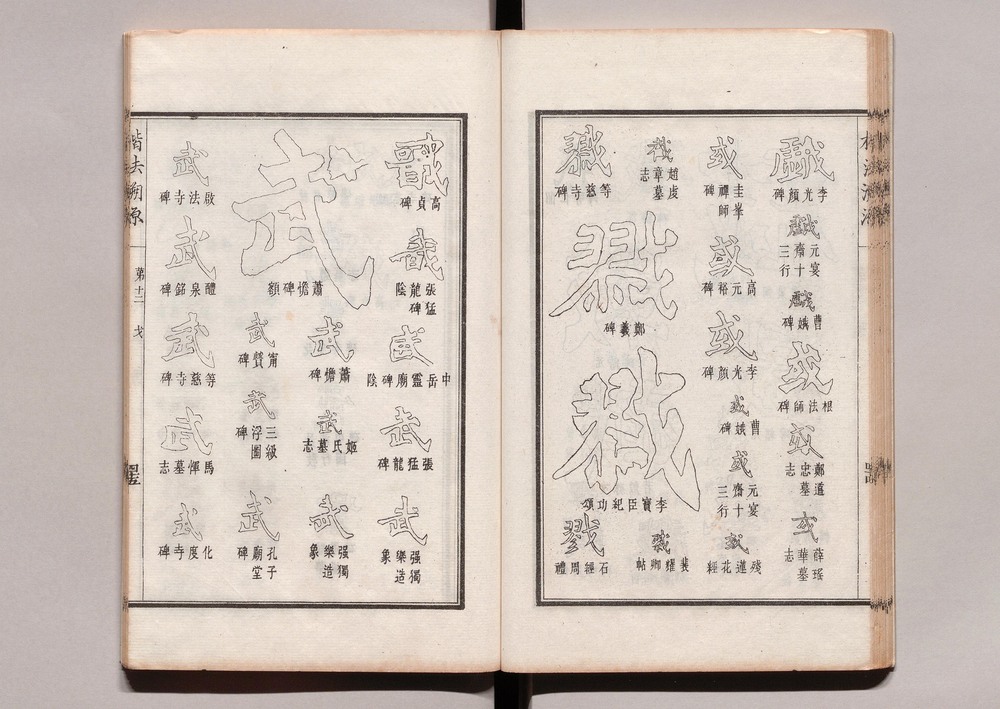 戲
李光顏碑
戲
元宴齋十三行
戲
曹娥碑
或
根法師碑
或
鄭道忠墓志
或
薛瑤華墓志
或
圭峯禪師碑
或
高元裕碑
或
李光顏碑
或
曹娥碑
或
元宴齋十三行
或
殘蓮花經
趙虔章墓志
等慈寺碑
戮
鄭羲碑
戮
李寶臣紀功頌
裴耀卿帖
戮
石經周禮
高貞碑
張猛龍碑陰
武
中岳靈廟碑陰
武
張猛龍碑
武
强獨樂造象
武
蕭憺碑額
武
蕭憺碑
武
姬氏墓志
武
强獨樂造象
武
甯贙碑
武
三級浮圖碑
武
孔子廟堂碑
武
啟法寺碑
武
醴泉銘碑
武
等慈寺碑
武
馬惲墓志
武
化度寺碑
楷法溯源 第十二 戈